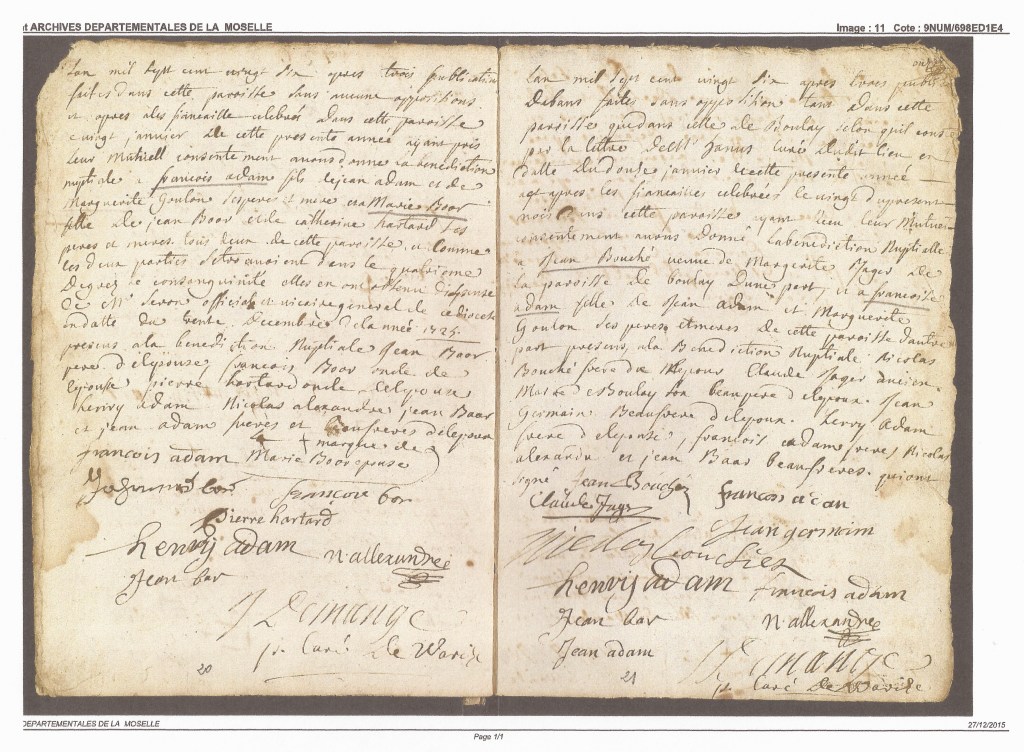 ARCHIVES DEPARTEMENTALES DE LA MOSELLE
Image : 11 Cote : 9NUM/698ED1E4
Lan mil sept cent vingt six apres trois publication
faites dans cette paroisse sans aucune oppositions
et apres les fiancaille celebrez dans cette paroisse
vingt janvier de cette presente année ayant pris
leur Mutuell consentement avons donne la benediction
nuptiale a francois adam fils de jean adam et de
Marguerite Goulon ses peres et mere et a Marie Boor
fille de jean Boor et de catherine hartard ses
peres et meres tous deux de cette paroisse, et comme
les deux parties se trouvoient dans le quatrieme
Degrez de consanguinité elles en ont obtenu dispense
De Mr Seron official et vicaire general de ce diocese
en datte du trente Decembre de lannée 1725.
presens a la benediction Nuptiale Jean Boor
pere d'elepouse, francois Boor oncle de
lepouse pierre hartard oncle
henry adam Nicolas alexandre jean Baar
et jean adam freres et beaufreres delepoux
francois adam + marque de
Marie Boor epouse
bor francove bor
Pierre hartard
henrij adam n allexandre
Jean bar
J Demange
pr Curé De Warize
20
onze
Lan mil sept cent vingt six apres trois public
de bans faites sans opposition tans dans cette
paroisse que dans celle de Boulay selon quil cons
par la lettre de Mr Janus Curé dudit lieu en
datte du douse janvier de cette presente année
et apres les fiancailles celebrées le vingt du present
mois dans cette paroisse ayant receu leur Mutuel
consentement avons donné La benediction Nuptielle
a Jean Bouché veuve de Margerite Jager de
la paroisse de boulay Dune part, et a francoise
adam fille de Jean adam et Marguerite
Goulon ses peres et meres de cette paroisse d'autre
part presens, a la Benediction Nuptiale Nicolas
Bouché frere de lepoux Claude Jager ancien
Maire de Boulay son beaupere d'elepoux. Jean
Germain Beaufrere delepoux. henry adam
frere d'elepouse, francois adam freres, Nicolas
alexandre et jean Baar beaufreres. qui ont
signé Jean Bouche francois adam
Claude Jager Jean germain
Nicolas bouchier
henrij adam francois adam
Jean bar n allexandre
Jean adam
J Demange
pr Curé De Warize
21
DEPARTEMENTALES DE LA MOSELLE
27/12/2015
Page 1/1